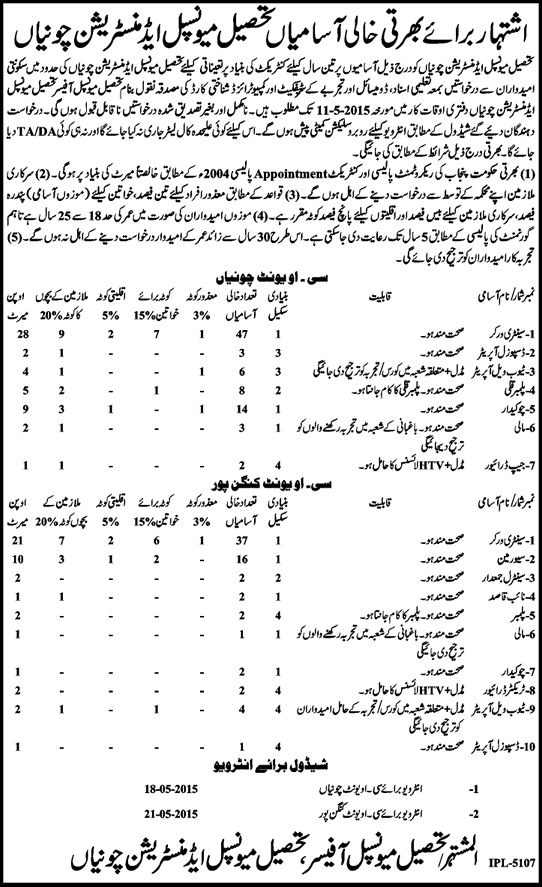 اشتہار برائے بھرتی خالی آسامیاں تحصیل میونسپل ایڈمنسٹریشن چونیاں
تحصیل میونسپل ایڈمنسٹریشن چونیاں کو درج ذیل آسامیوں پر تین سال کیلئے کنٹریکٹ کی بنیاد پر تعیناتی کیلئے تحصیل میونسپل ایڈمنسٹریشن چونیاں کی حدود میں سکونتی
امیدواران سے درخواستیں بمعہ تعلیمی اسناد، ڈومیسائل اور تجربے کے سرٹیفکیٹ اور کمپیوٹرائزڈ شناختی کارڈ کی مصدقہ نقول بنام تحصیل میونسپل آفیسر تحصیل میونسپل
ایڈمنسٹریشن چونیاں دفتری اوقات کار میں مورخہ 2015-5-11 تک مطلوب ہیں۔ نامکمل اور بغیر تصدیق شدہ درخواستیں ناقابل قبول ہوں گی۔ درخواست
دہندگان دیئے گئے شیڈول کے مطابق انٹرویو کیلئے روبرو سلیکشن کمیٹی پیش ہوں گے۔ اس کیلئے کوئی علیحدہ کال لیٹر جاری نہ کیا جائے گا اور نہ ہی کوئی TA/DA دیا
جائے گا۔ بھرتی درج ذیل شرائط کے مطابق کی جائیگی۔
(1) بھرتی حکومت پنجاب کی ریکروٹمنٹ پالیسی اور کنٹریکٹ Appointment پالیسی 2004ء کے مطابق خالصتاً میرٹ کی بنیاد پر ہو گی۔ (2) سرکاری
ملازمین اپنے محکمہ کے توسط سے درخواست دینے کے اہل ہوں گے۔ (3) قواعد کے مطابق معذور افراد کیلئے تین فیصد، خواتین کیلئے (موزوں آسامی) پندرہ
فیصد، سرکاری ملازمین کیلئے بیس فیصد اور اقلیتوں کیلئے پانچ فیصد کوٹہ مقرر ہے۔ (4) موزوں امیدواران کی صورت میں عمر کی حد 18 سے 25 سال ہے تاہم
گورنمنٹ کی پالیسی کے مطابق 5 سال تک رعایت دی جا سکتی ہے۔ اس طرح 30 سال سے زائد عمر کے امیدوار درخواست دینے کے اہل نہ ہوں گے۔ (5)
تجربہ کار امیدواران کو ترجیح دی جائے گی۔
سی۔ او یونٹ چونیاں
نمبر شمار/نام آسامی قابلیت بنیادی سکیل تعداد خالی آسامیاں معذور کوٹہ 3% کوٹہ برائے خواتین 15% اقلیتی کوٹہ 5% ملازمین کے بچوں کا کوٹہ 20% اوپن میرٹ
1- سینٹری ورکر صحت مند ہو۔ 1 47 1 7 2 9 28
2- ڈسپوزل آپریٹر صحت مند ہو۔ 3 3 - - - 1 2
3- ٹیوب ویل آپریٹر مڈل+متعلقہ شعبہ میں کورس/تجربہ کو ترجیح دی جائیگی 3 6 1 - - 1 4
4- پلمبر قلی صحت مند ہو۔ پلمبر قلی کا کام جانتا ہو۔ 2 8 - 1 - 2 5
5- چوکیدار صحت مند ہو۔ 1 14 1 - 1 3 9
6- مالی صحت مند ہو۔ باغبانی کے شعبہ میں تجربہ رکھنے والوں کو 1 3 - - - 1 2
ترجیح دیجائیگی
7- جیپ ڈرائیور مڈل+HTV لائسنس کا حامل ہو۔ 4 2 - - - 1 1
سی۔ او یونٹ کنگن پور
نمبر شمار/نام آسامی قابلیت بنیادی سکیل تعداد خالی آسامیاں معذور کوٹہ 3% کوٹہ برائے خواتین 15% اقلیتی کوٹہ 5% ملازمین کے بچوں کوٹہ 20% اوپن میرٹ
1- سینٹری ورکر صحت مند ہو۔ 1 37 1 6 2 7 21
2- سیور مین صحت مند ہو۔ 1 16 - 2 1 3 10
3- سینٹرل جمعدار صحت مند ہو۔ 2 2 - - - - 2
4- نائب قاصد صحت مند ہو۔ 1 2 - - - 1 1
5- پلمبر صحت مند ہو۔ پلمبر کا کام جانتا ہو۔ 4 2 - - - - 2
6- مالی صحت مند ہو۔ باغبانی کے شعبہ میں تجربہ رکھنے والوں کو 1 1 - - - - 1
ترجیح دی جائیگی
7- چوکیدار صحت مند ہو۔ 1 2 - - - - 1
8- ٹریکٹر ڈرائیور مڈل+HTV لائسنس کا حامل ہو۔ 4 2 - - - - 2
9- ٹیوب ویل آپریٹر مڈل+متعلقہ شعبہ میں کورس/تجربہ کے حامل امیدواران 4 4 - 1 - 1 2
کو ترجیح دی جائیگی
10- ڈسپوزل آپریٹر صحت مند ہو۔ 4 1 - - - - 1
شیڈول برائے انٹرویو
1- انٹرویو برائے سی۔ او یونٹ چونیاں 18-05-2015
2- انٹرویو برائے سی۔ او یونٹ کنگن پور 21-05-2015
المشتہر/تحصیل میونسپل آفیسر، تحصیل میونسپل ایڈمنسٹریشن چونیاں
IPL-5107